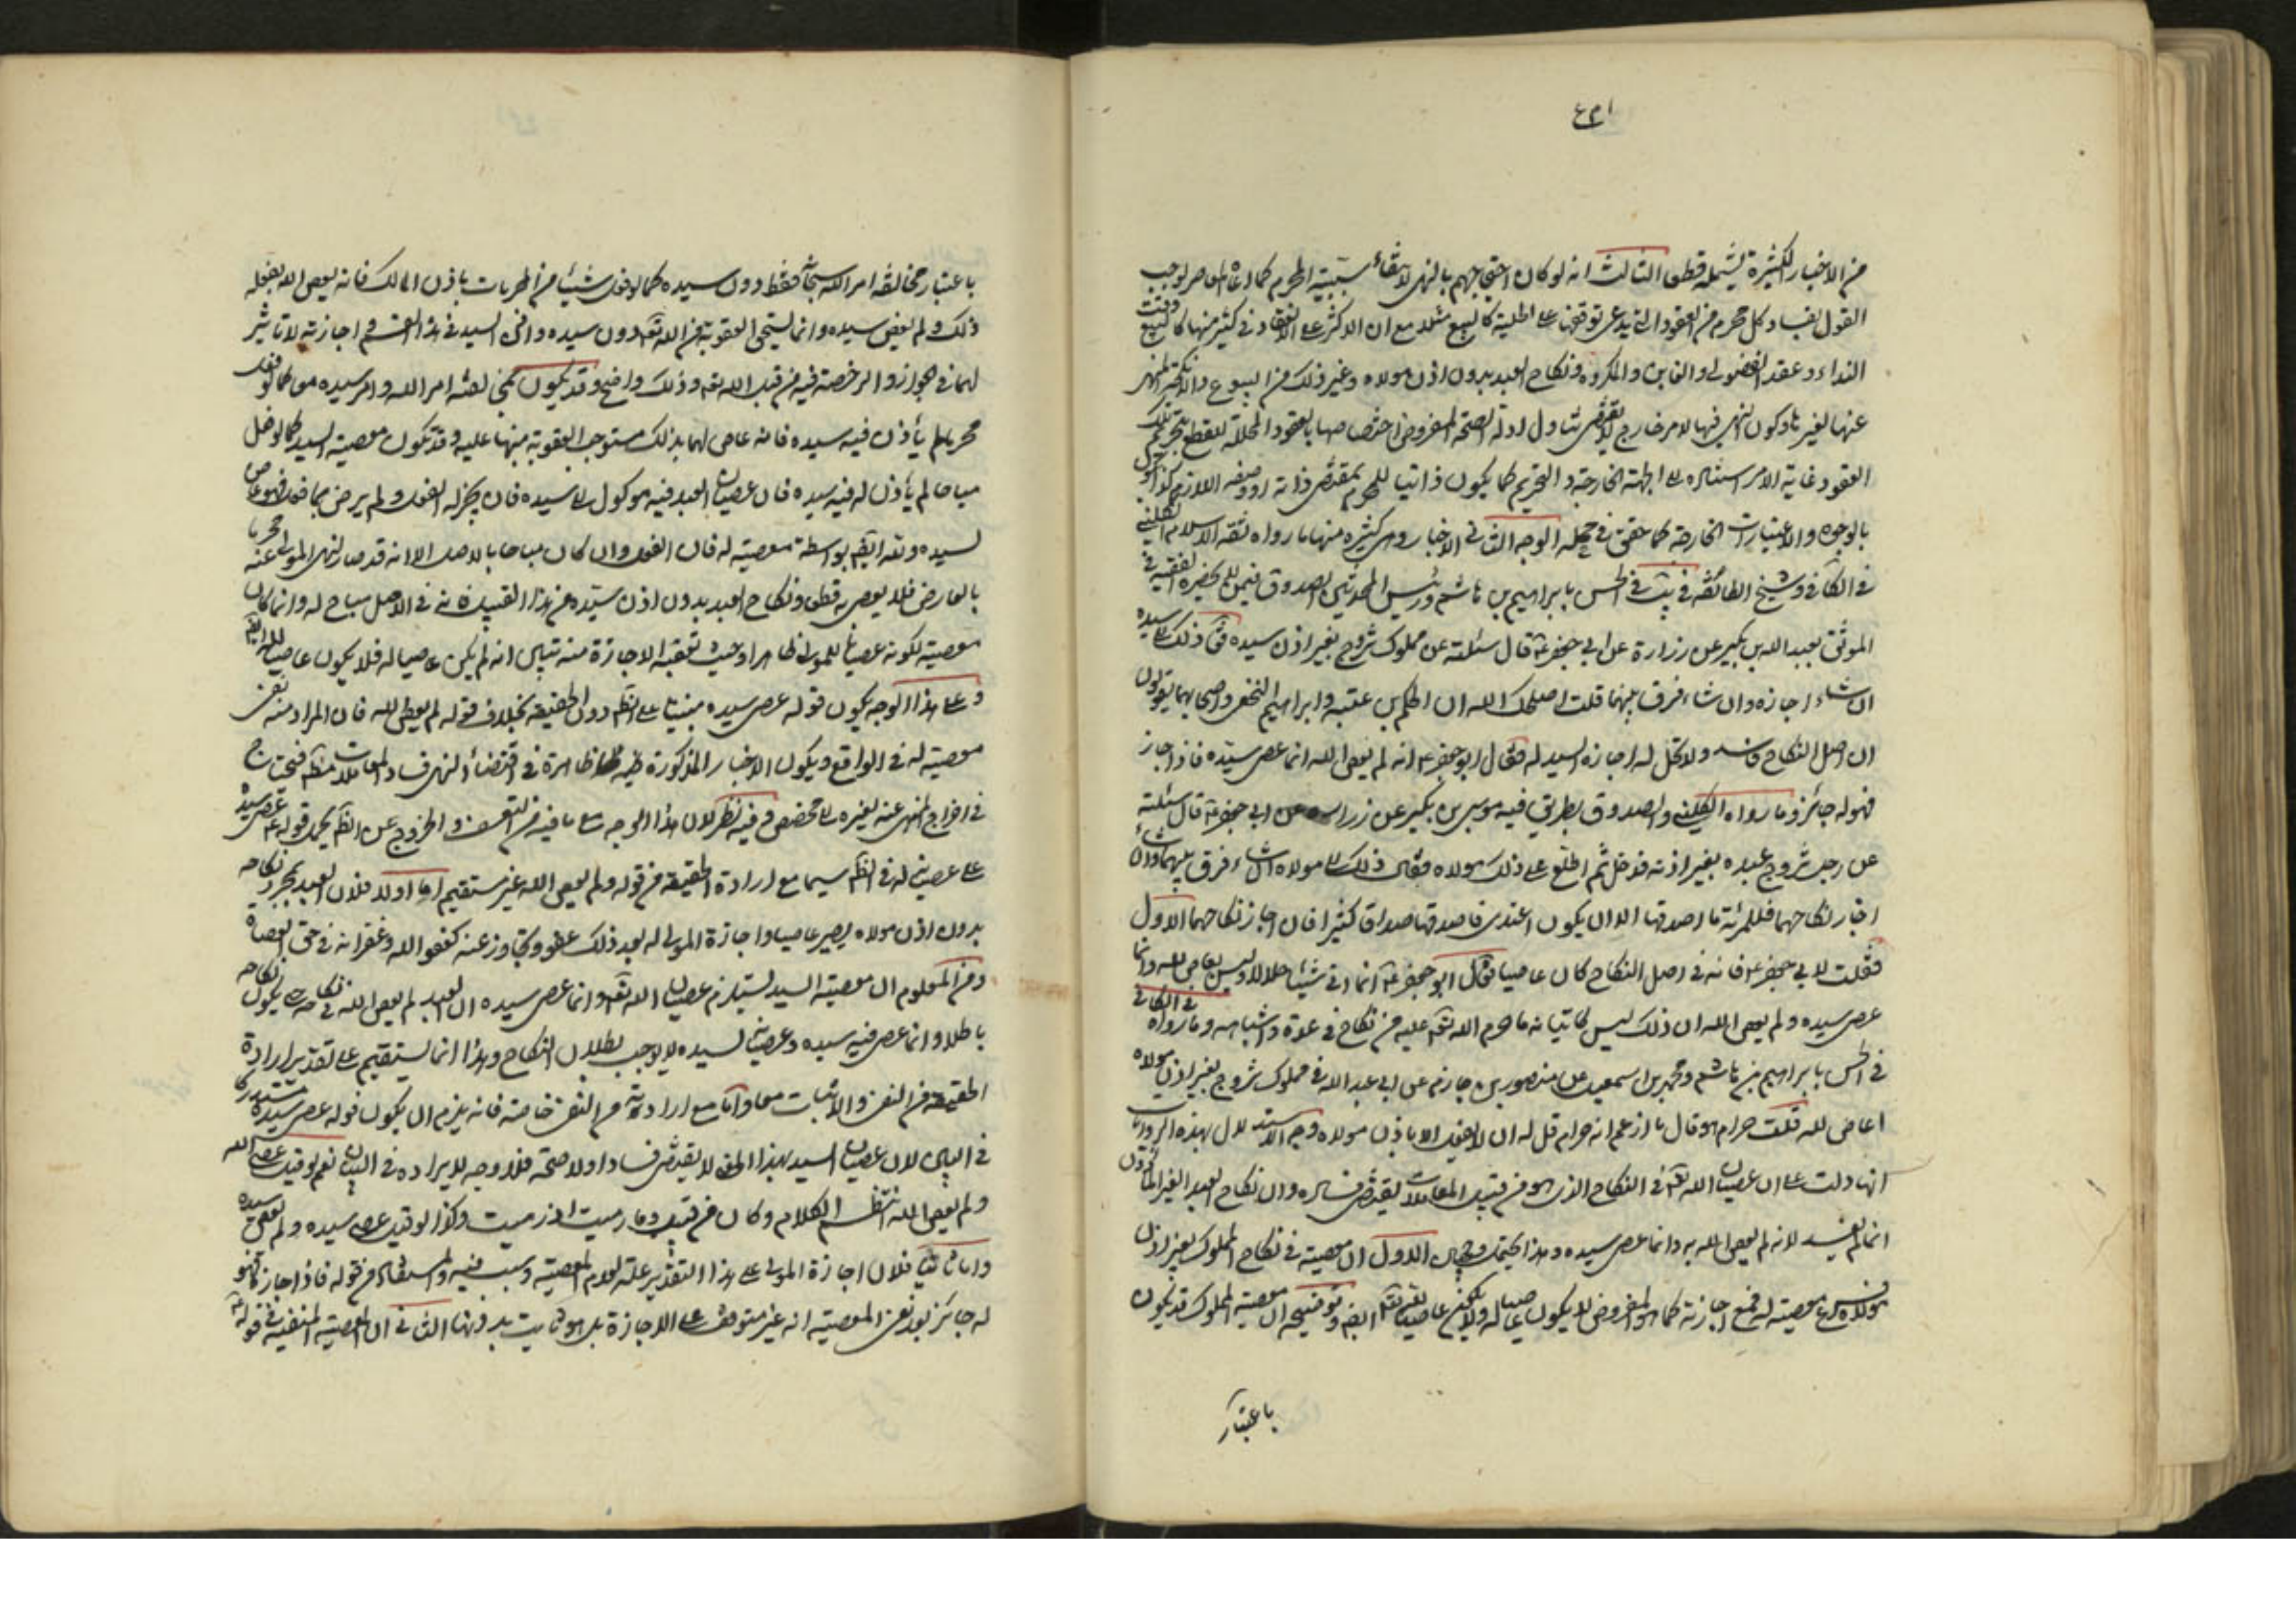 من الاخبار الكثيرة يشمله قطعا الثالث انه لو كان احتجاجهم بالنهى لانتفاء سببية المحرم كما ادعاه المعاصر لوجب
القول بفساد كل محرم من العقود التى يدعى توقفها على الحلية كالبيع مثلا مع ان الاكثر على الانعقاد فى كثير منها كالبيع وقت
النداء وعقد الفضولى والغابن والمكروه ونكاح العبد بدون اذن مولاه وغير ذلك من البيوع والانكحة المنهى
عنها لغيرها وكون النهى فيها لامر خارج لا يقتضى تناول ادلة الصحة المفروض اختصاصها بالعقود المحللة للقطع بتحريم تلك
العقود غاية الامر استناده الى الجهة الخارجة والتحريم كما يكون ذاتيا للمحرم بمقتضى ذاته او وصفه اللازم كذا يكون
بالوجوه والاعتبارات الخارجة كما حقق فى محله الوجه الثانى الاخبار وهى كثيرة منها ما رواه ثقة الاسلام الكلينى
فى الكافى وشيخ الطائفة فى يب فى الحسن بابراهيم بن هاشم ورئيس المحدثين الصدوق فيمن لا يحضره الفقيه فى
الموثق بعبد الله بن بكير عن زرارة عن ابى جعفر ع قال سئلته عن مملوك تزوج بغير اذن سيده فق ذلك الى سيده
ان شاء اجازه وان شاء فرق بينهما قلت اصلحك الله ان الحكم بن عتيبة وابراهيم النخعى واصحابهما يقولون
ان اصل النكاح فاسد ولا تحل له اجازة السيد له فقال ابو جعفر ع انه لم يعص الله انما عصى سيده فاذا اجاز
فهو له جائز وما رواه الكلينى والصدوق بطريق فيه موسى بن بكير عن زرارة عن ابى جعفر ع قال سئلته
عن رجل تزوج عبده بغير اذنه فدخل ثم اطلع على ذلك مولاه فقال ذلك الى مولاه ان شاء فرق بينهما وان شاء
اجاز نكاحهما فللمرئة ما اصدقها الا ان يكون اعتدى فاصدقها صداقا كثيرا فان اجاز نكاحهما الاول
فقلت لابى جعفر ع فانه فى اصل النكاح كان عاصيا فقال ابو جعفر ع انما اتى شيئا حلالا وليس بعاص لله وانما
عصى سيده ولم يعص الله ان ذلك ليس كاتيانه ما حرم الله تعه عليه من نكاح فى عدة واشباهه وما رواه فى الكافى
فى الحسن بابراهيم بن هاشم ومحمد بن اسمعيل عن منصور بن حازم عن ابى عبد الله فى مملوك تزوج بغير اذن مولاه
اعاص لله قلت حرام هو قال ما ازعم انه حرام قل له ان لا يفعل الا باذن مولاه وجه الاستدلال بهذه الروايات
انها دلت على ان عصيان الله تعه فى النكاح الذى هو من قبيل المعاملات يقتضى فساده وان نكاح العبد الغير الماذون
انما لم يفسد لانه لم يعص الله به وانما عصى سيده وهذا يحتمل وجهان الاول ان معصيته فى نكاح المملوك بغير اذن
مولاه معصية له فمع اجازته كما هو المفروض لا يكون عاصيا له ولا يكون عاصيا لله تعه ايضا وتوضيحه ان معصية المملوك قد يكون
باعتبار
باعتبار مخالفة امر الله سبحانه فقط دون سيده كما لو فعل شيئا من المحرمات باذن المالك فانه يعصى الله بفعله
ذلك ولم يعص سيده وانما يستحق العقوبة من الله تعه دون سيده واذن السيد فى هذا القسم واجازته لا تاثير
لهما فى الجواز والرخصة فيه من قبل الله تعه وذلك واضح وقد يكون بمخالفته امر الله وامر سيده معا كما لو فعل
محرما لم يأذن فيه سيده فانه عاص لهما بذلك مستوجب العقوبة منهما عليه وقد تكون معصية السيد كما لو فعل
مباحا لم يأذن له فيه سيده فان عصيان العبد فيه موكول الى سيده فان لم يجز له الفعل ولم يرض بما فعل فهو عاص
لسيده ولله ايضا بواسطة معصيته له فان الفعل وان كان مباحا بالاصل الا انه قد صار لنهى المولى عنه محرما
بالعارض فلا يعصى به قطعا ونكاح العبد بدون اذن سيده من هذا القبيل فانه فى الاصل مباح له وانما كان
معصية لكونه عصيانا للمولى ظاهرا وحيث تعقبه الاجازة منه تبين انه لم يكن عاصيا له فلا يكون عاصيا لله ايضا
وعلى هذا الوجه يكون قوله عصى سيده مبنيا على الظاهر دون الحقيقة بخلاف قوله لم يعص الله فان المراد منه نفى
معصية له فى الواقع ويكون الاخبار المذكورة ظاهرة فى اقتضاء النهى فساد المعاملات مطلقا فيحتاج
فى اخراج المنهى عنه لغيره الى مخصص وفيه نظر لان هذا الوجه مع ما فيه من التعسف والخروج عن الظاهر بحمل قوله ع عصى سيده
على عصيانه له فى الظاهر سيما مع ارادة الحقيقة من قوله ولم يعص الله غير مستقيم اما اولا فلان العبد بمجرد نكاحه
بدون اذن مولاه يصير عاصيا واجازة المولى له بعد ذلك عفو وتجاوز عنه كعفو الله وغفرانه فى حق العصاة
ومن المعلوم ان معصية السيد يستلزم عصيان الله تعه وانما عصى سيده ان العبد لم يعص الله فى نكاحه حتى يكون نكاحه
باطلا وانما عصى فيه سيده وعصيانه لسيده لا يوجب بطلان النكاح وهذا انما يستقيم على تقدير ارادة
الحقيقة من النفى والاثبات معا واما مع ارادته من النفى خاصة فانه يلزم ان يكون قوله عصى سيده مستدركا
فى البين لان عصيان السيد بهذا المعنى لا يقتضى فسادا ولا صحة فلا وجه لايراده فى البيان نعم لو قيل عصى الله
ولم يعص الله انتظم الكلام وكان من قبيل وما رميت اذ رميت وكذا لو قيل عصى سيده ولم يعص سيده
واما ثانيا فلان اجازة المولى على هذا التقدير علة لعدم المعصية وسبب فيه والمستفاد من قوله فاذا اجاز فهو
له جائز بعد نفى المعصية انه غير متوقف على الاجازة بل هو ثابت بدونها الثانى ان المعصية المنفية فى قوله